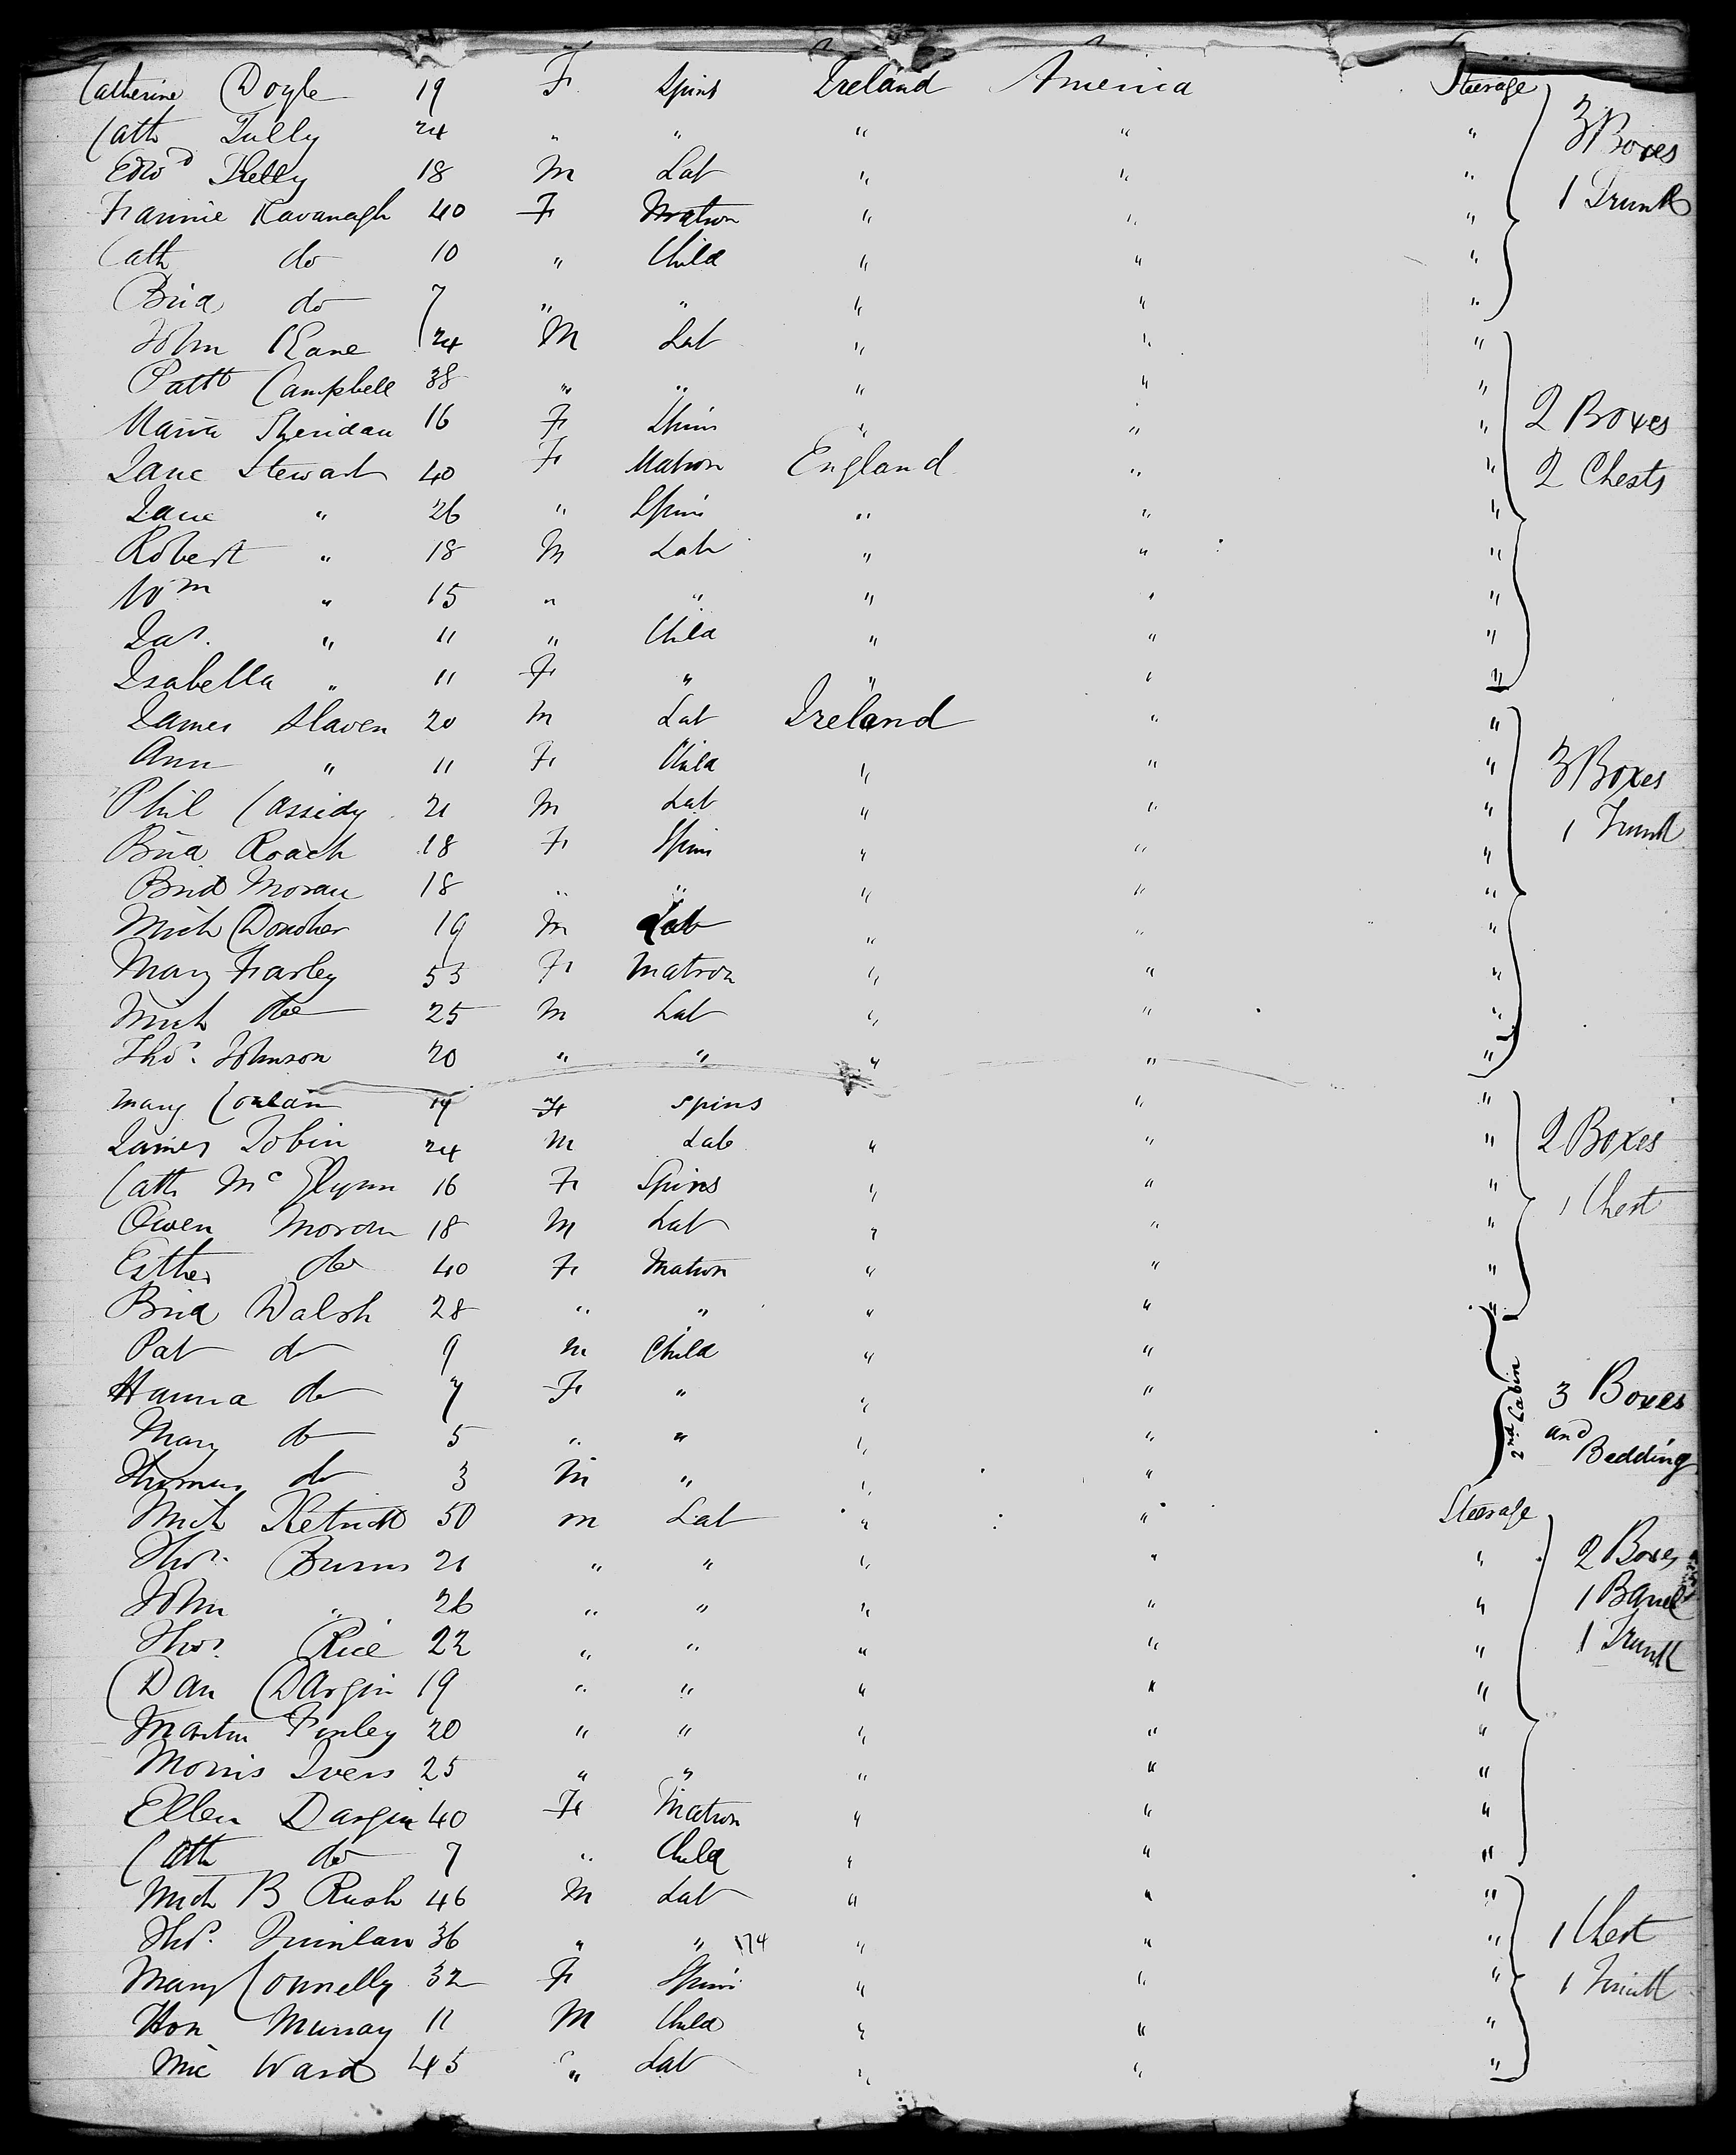 Catherine Doyle 19 F Spins Ireland America Steerage 3 Boxes
Cath Tully 24 " " " " "
Edwd Kelly 18 M Lab " " " 1 Trunk
Fannie Kavanagh 40 F Matron " " "
Cath do 10 " Child " " "
Brid do 7 " " " " "
John Kane 24 M Lab " " "
Patk Campbell 38 " " " " "
Maria Sheridan 16 F Spins " " " 2 Boxes
Jane Stewart 40 F Matron England " " 2 Chests
Jane " 26 " Spins " " "
Robert " 18 M Lab " " "
Wm " 15 " " " " "
Jas. " 11 " Child " " "
Isabella " 11 F " " " "
James Slaven 20 M Lab Ireland " "
Ann " 11 F Child " " " 3 Boxes
Phil Cassidy 21 M Lab " " " 1 Trunk
Brid Roach 18 F Spins " " "
Brid Moran 18 " " " " "
Mich Donoher 19 M Lab " " "
Mary Farley 53 F Matron " " "
Mich do 25 M Lab " " "
Thos. Johnson 20 " " " " "
Mary Conlan 19 F Spins " "
James Tobin 24 M Lab " " " 2 Boxes
Cath McGlynn 16 F Spins " " " 1 Chest
Owen Moran 18 M Lab " " "
Esther do 40 F Matron " " "
Brid Walsh 28 " " " " "
Pat do 9 M Child " "
Hanna do 7 F " " " 2nd Cabin 3 Boxes
Mary do 5 " " " " and Bedding
Thomas do 3 M " " "
Mich 50 M Lab " " Steerage
Thos. Burns 21 " " " " " 2 Boxes
John " 26 " " " " " 1 Barrel
Thos. Rice 22 " " " " " 1 Trunk
Dan Dargin 19 " " " " "
Martin Finley 20 " " " " "
Morris Ivers 25 " " " " "
Ellen Dargin 40 F Matron " " "
Cath do 7 " Child " " "
Mich B Rush 46 M Lab " " "
Thos. Quinlan 36 " " 174 " " " 1 Chest
Mary Connelly 32 F Spins " " " 1 Trunk
Hon Murray 11 M Child " " "
Mic Ward 45 " Lab " " "